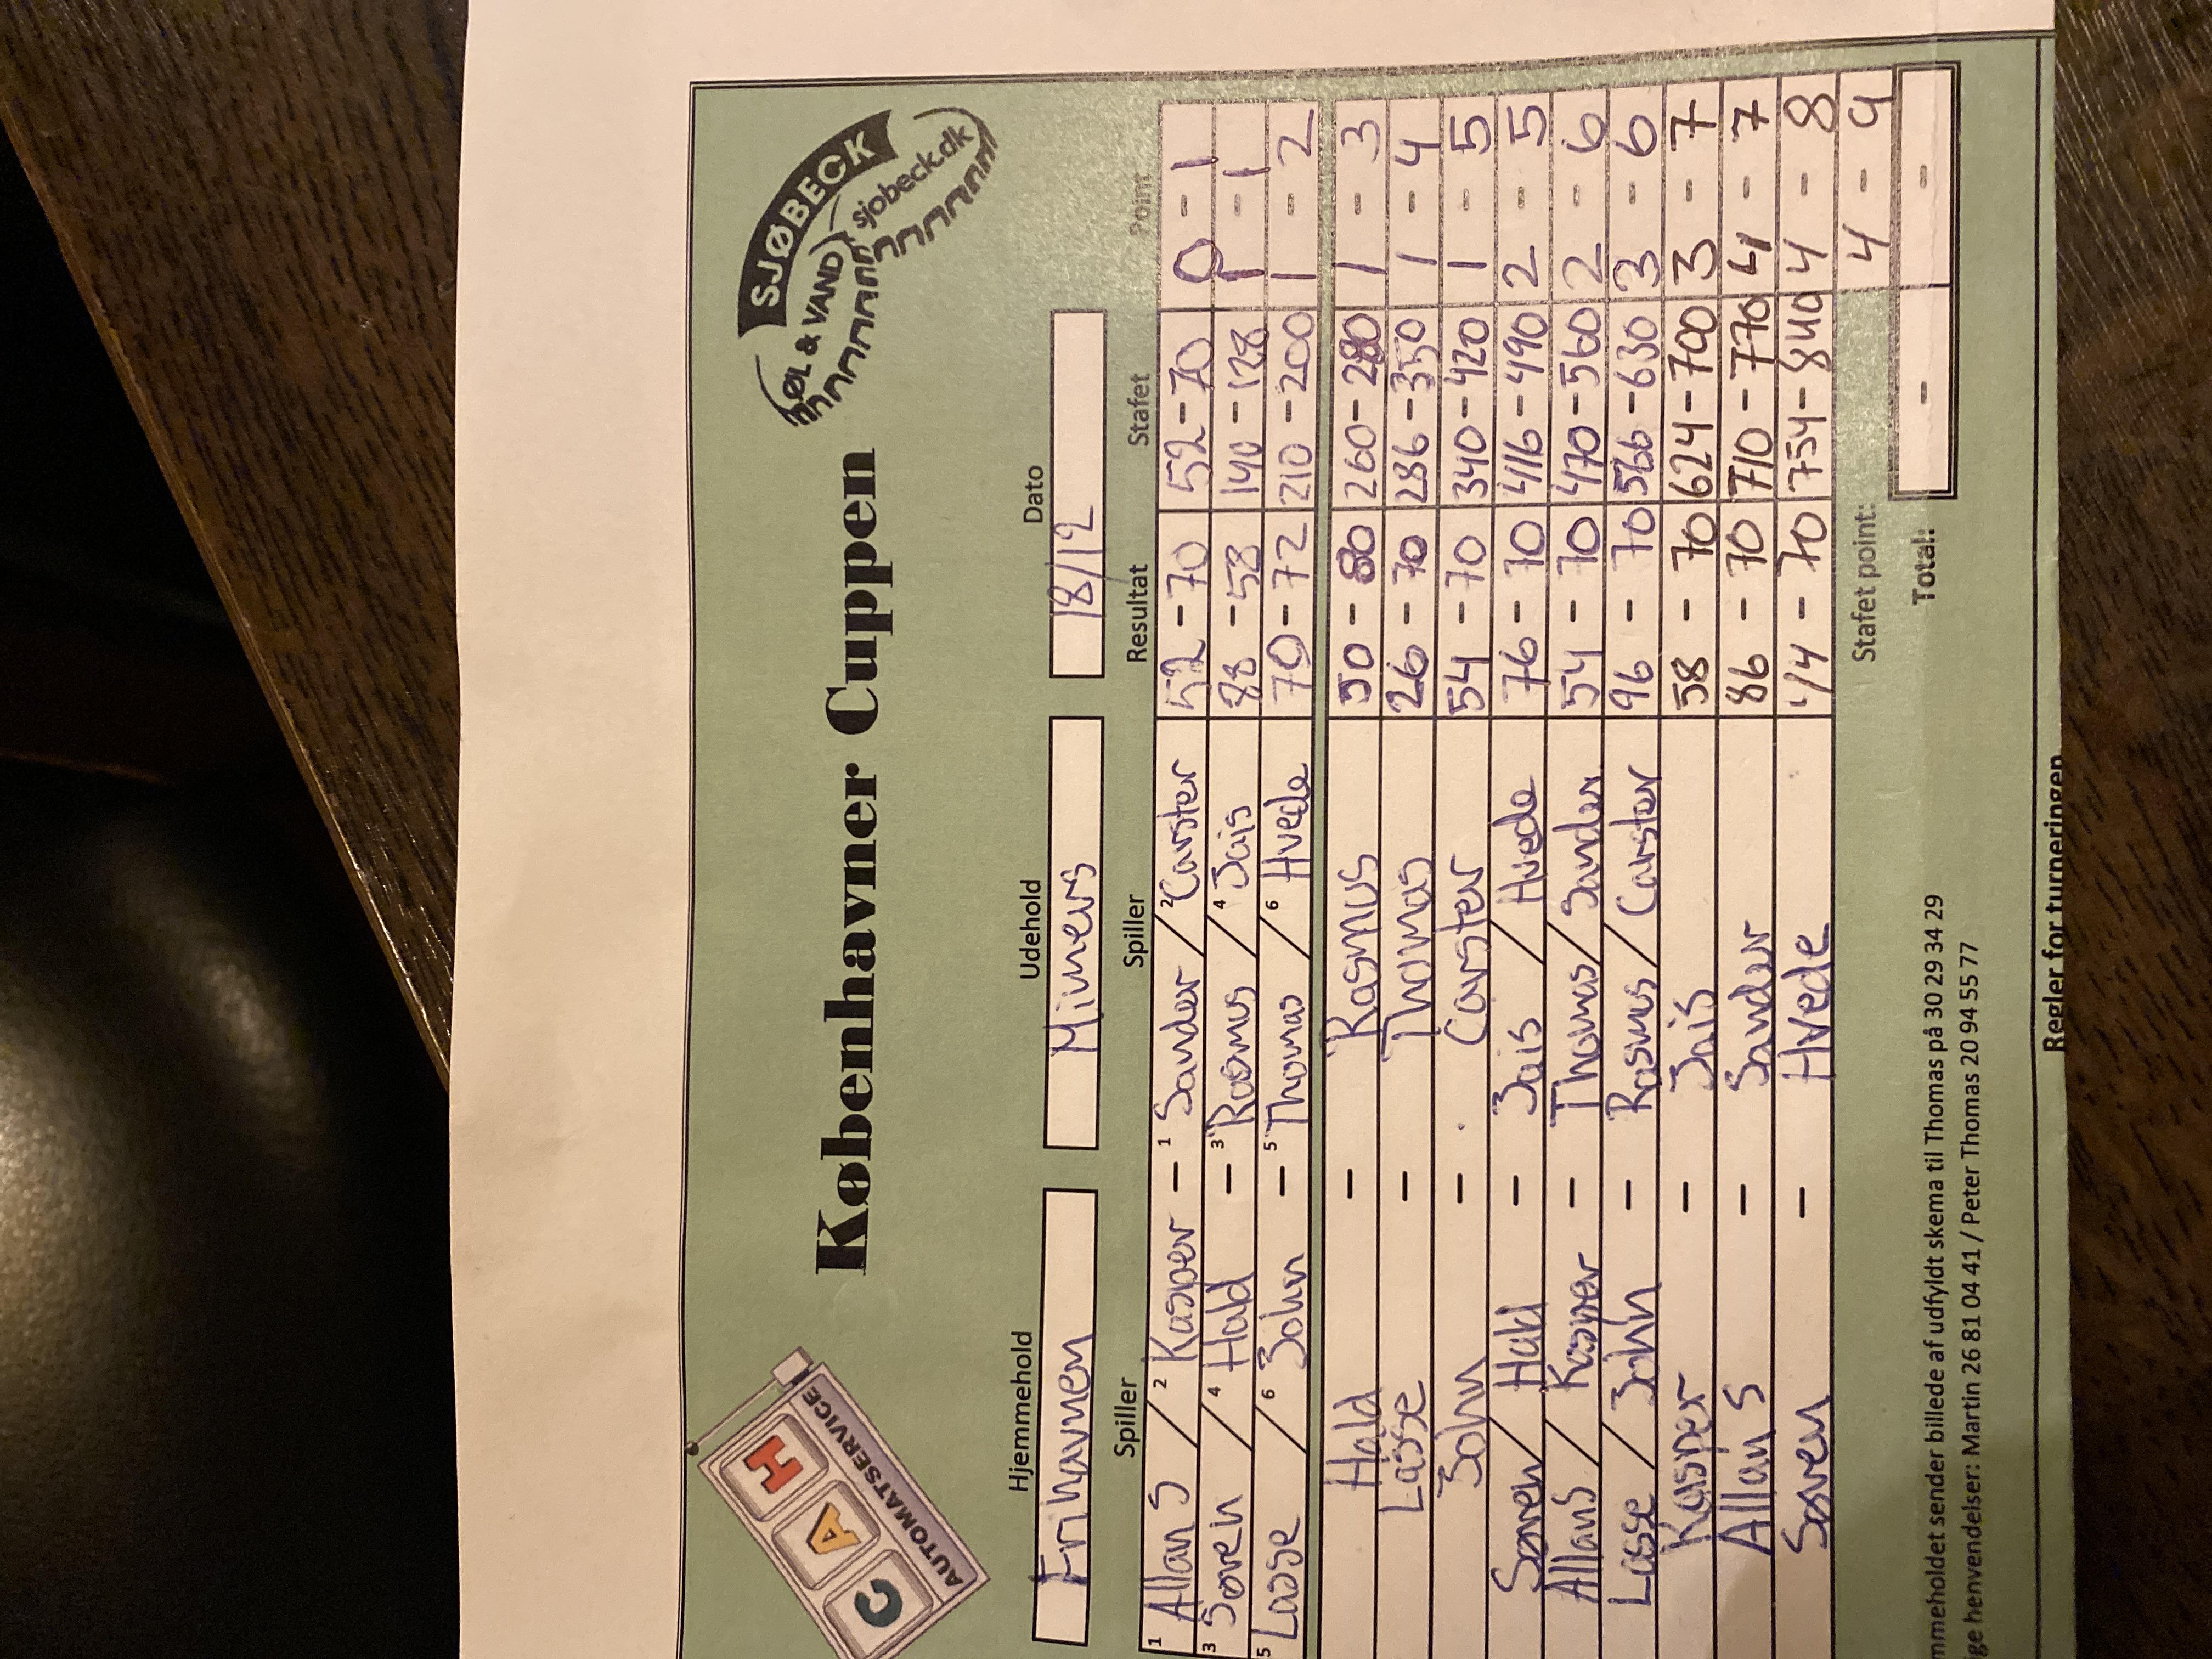 CAH
AUTOMATSERVICE
Københavner Cuppen
ØL & VAND
SJØBECK
sjobeck.dk
Hjemmehold Udehold Dato
Frihavnen Mimers 18/12
Spiller Spiller Resultat Stafet Point
1 Allan S / 2 Kasper - 1 Sander / 2 Carsten 52 - 70 52 - 70 0 - 1
3 Søren / 4 Hald - 3 Rasmus / 4 Jais 88 - 58 140 - 128 1 - 1
5 Lasse / 6 John - 5 Thomas / 6 Hvede 70 - 72 210 - 200 1 - 2
Hald - Rasmus 50 - 80 260 - 280 1 - 3
Lasse - Thomas 26 - 70 286 - 350 1 - 4
John - Carsten 54 - 70 340 - 420 1 - 5
Søren / Hald - Jais / Hvede 76 - 70 416 - 490 2 - 5
Allan S / Kasper - Thomas / Sander 54 - 70 470 - 560 2 - 6
Lasse / John - Rasmus / Carsten 96 - 70 566 - 630 3 - 6
Kasper - Jais 58 - 70 624 - 700 3 - 7
Allan S - Sander 86 - 70 710 - 770 4 - 7
Søren - Hvede 44 - 70 754 - 840 4 - 8
Stafet point: 4 - 9
Total: - -
mmeholdet sender billede af udfyldt skema til Thomas på 30 29 34 29
ige henvendelser: Martin 26 81 04 41 / Peter Thomas 20 94 55 77
Regler for turneringen